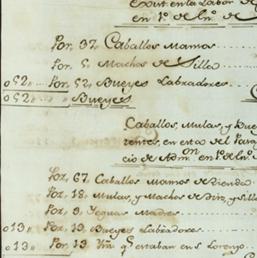 exist. en la Labor de
en 1.º de En.º de
Por, 37, Caballos Mansos
Por, 5, Machos de Silla
052,, Por, 52, Bueyes Labradores
052,, » Bueyes
Caballos, Mulas, y Bue
rentes, en esta del Para
cio de Adm.on en 1.º de En.º
Por, 67, Caballos Mansos de Rienda
Por, 18, Mulas, y Machos de Tiro, y Silla
Por, 9, Yeguas Madres
013,, Por, 13, Bueyes Labradores
013,, Por, 13, q.e estaban en S. Lorenzo